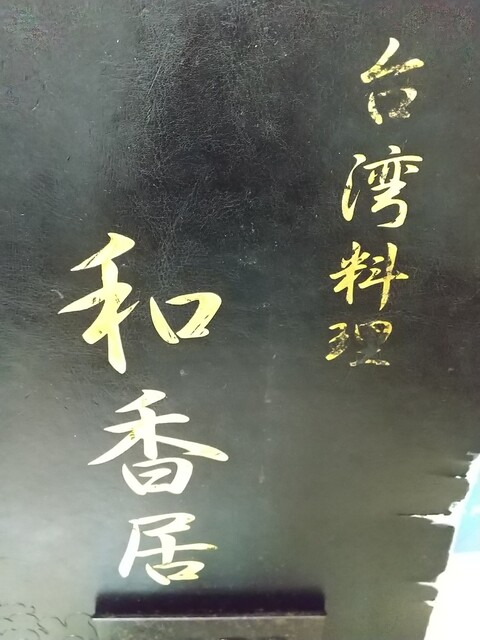 台湾料理
和香居